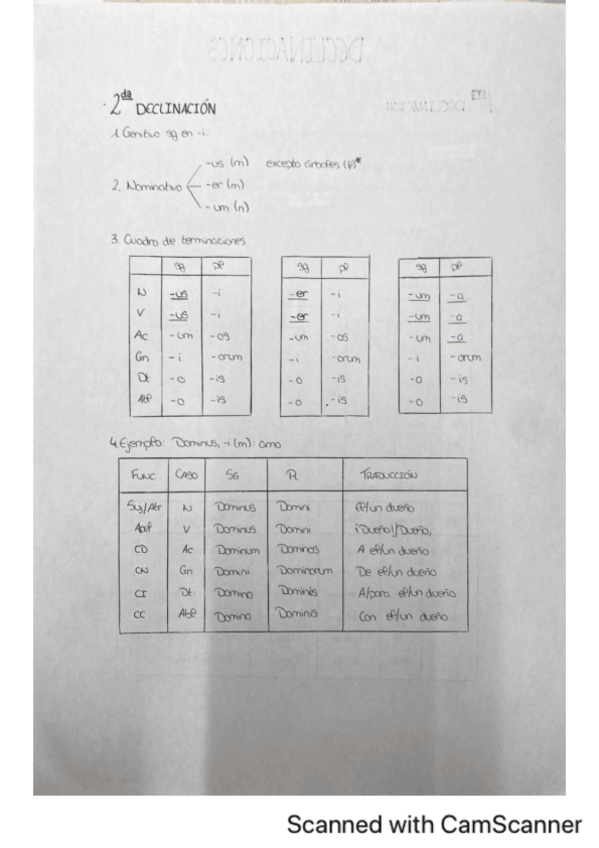 DECLINACIONES
· 2da DECLINACIÓN
1. Genitivo sg en -i.
2. Nominativo
-us (m) excepto árboles (f)*
-er (m)
-um (n)
3. Cuadro de terminaciones
sg pl sg pl sg pl
N -us -i -er -i -um -a
V -us -i -er -i -um -a
Ac -um -os -um -os -um -a
Gn -i -orum -i -orum -i -orum
Dt -o -is -o -is -o -is
Abl -o -is -o -is -o -is
4. Ejemplo: Dominus, -i (m): amo
FUNC CASO SG PL TRADUCCIÓN
Suj/Atr N Dominus Domini el/un dueño
Apel V Dominus Domini ¡Dueño!/Dueño,
CD Ac Dominum Dominos A el/un dueño
CN Gn Domini Dominorum De el/un dueño
CI Dt Domino Dominis A/para el/un dueño
CC Abl Domino Dominis Con el/un dueño
Scanned with CamScanner